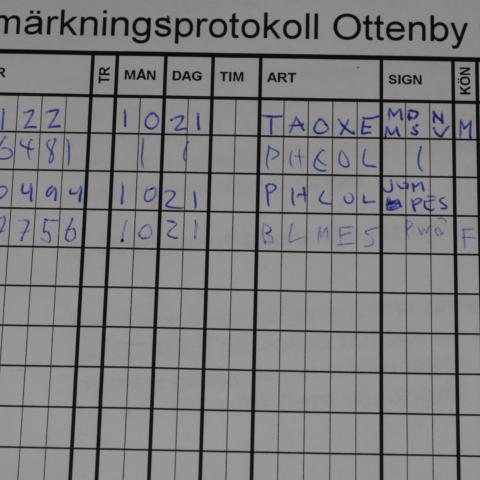 märkningsprotokoll Ottenby
R TR MÅN DAG TIM ART SIGN KÖN
122 10 21 TAOXE MD N M
MS V
6481 1 1 PHCOL 1
0494 10 21 PHCOL JOM
PES
2756 10 21 BLMES PWÖ F